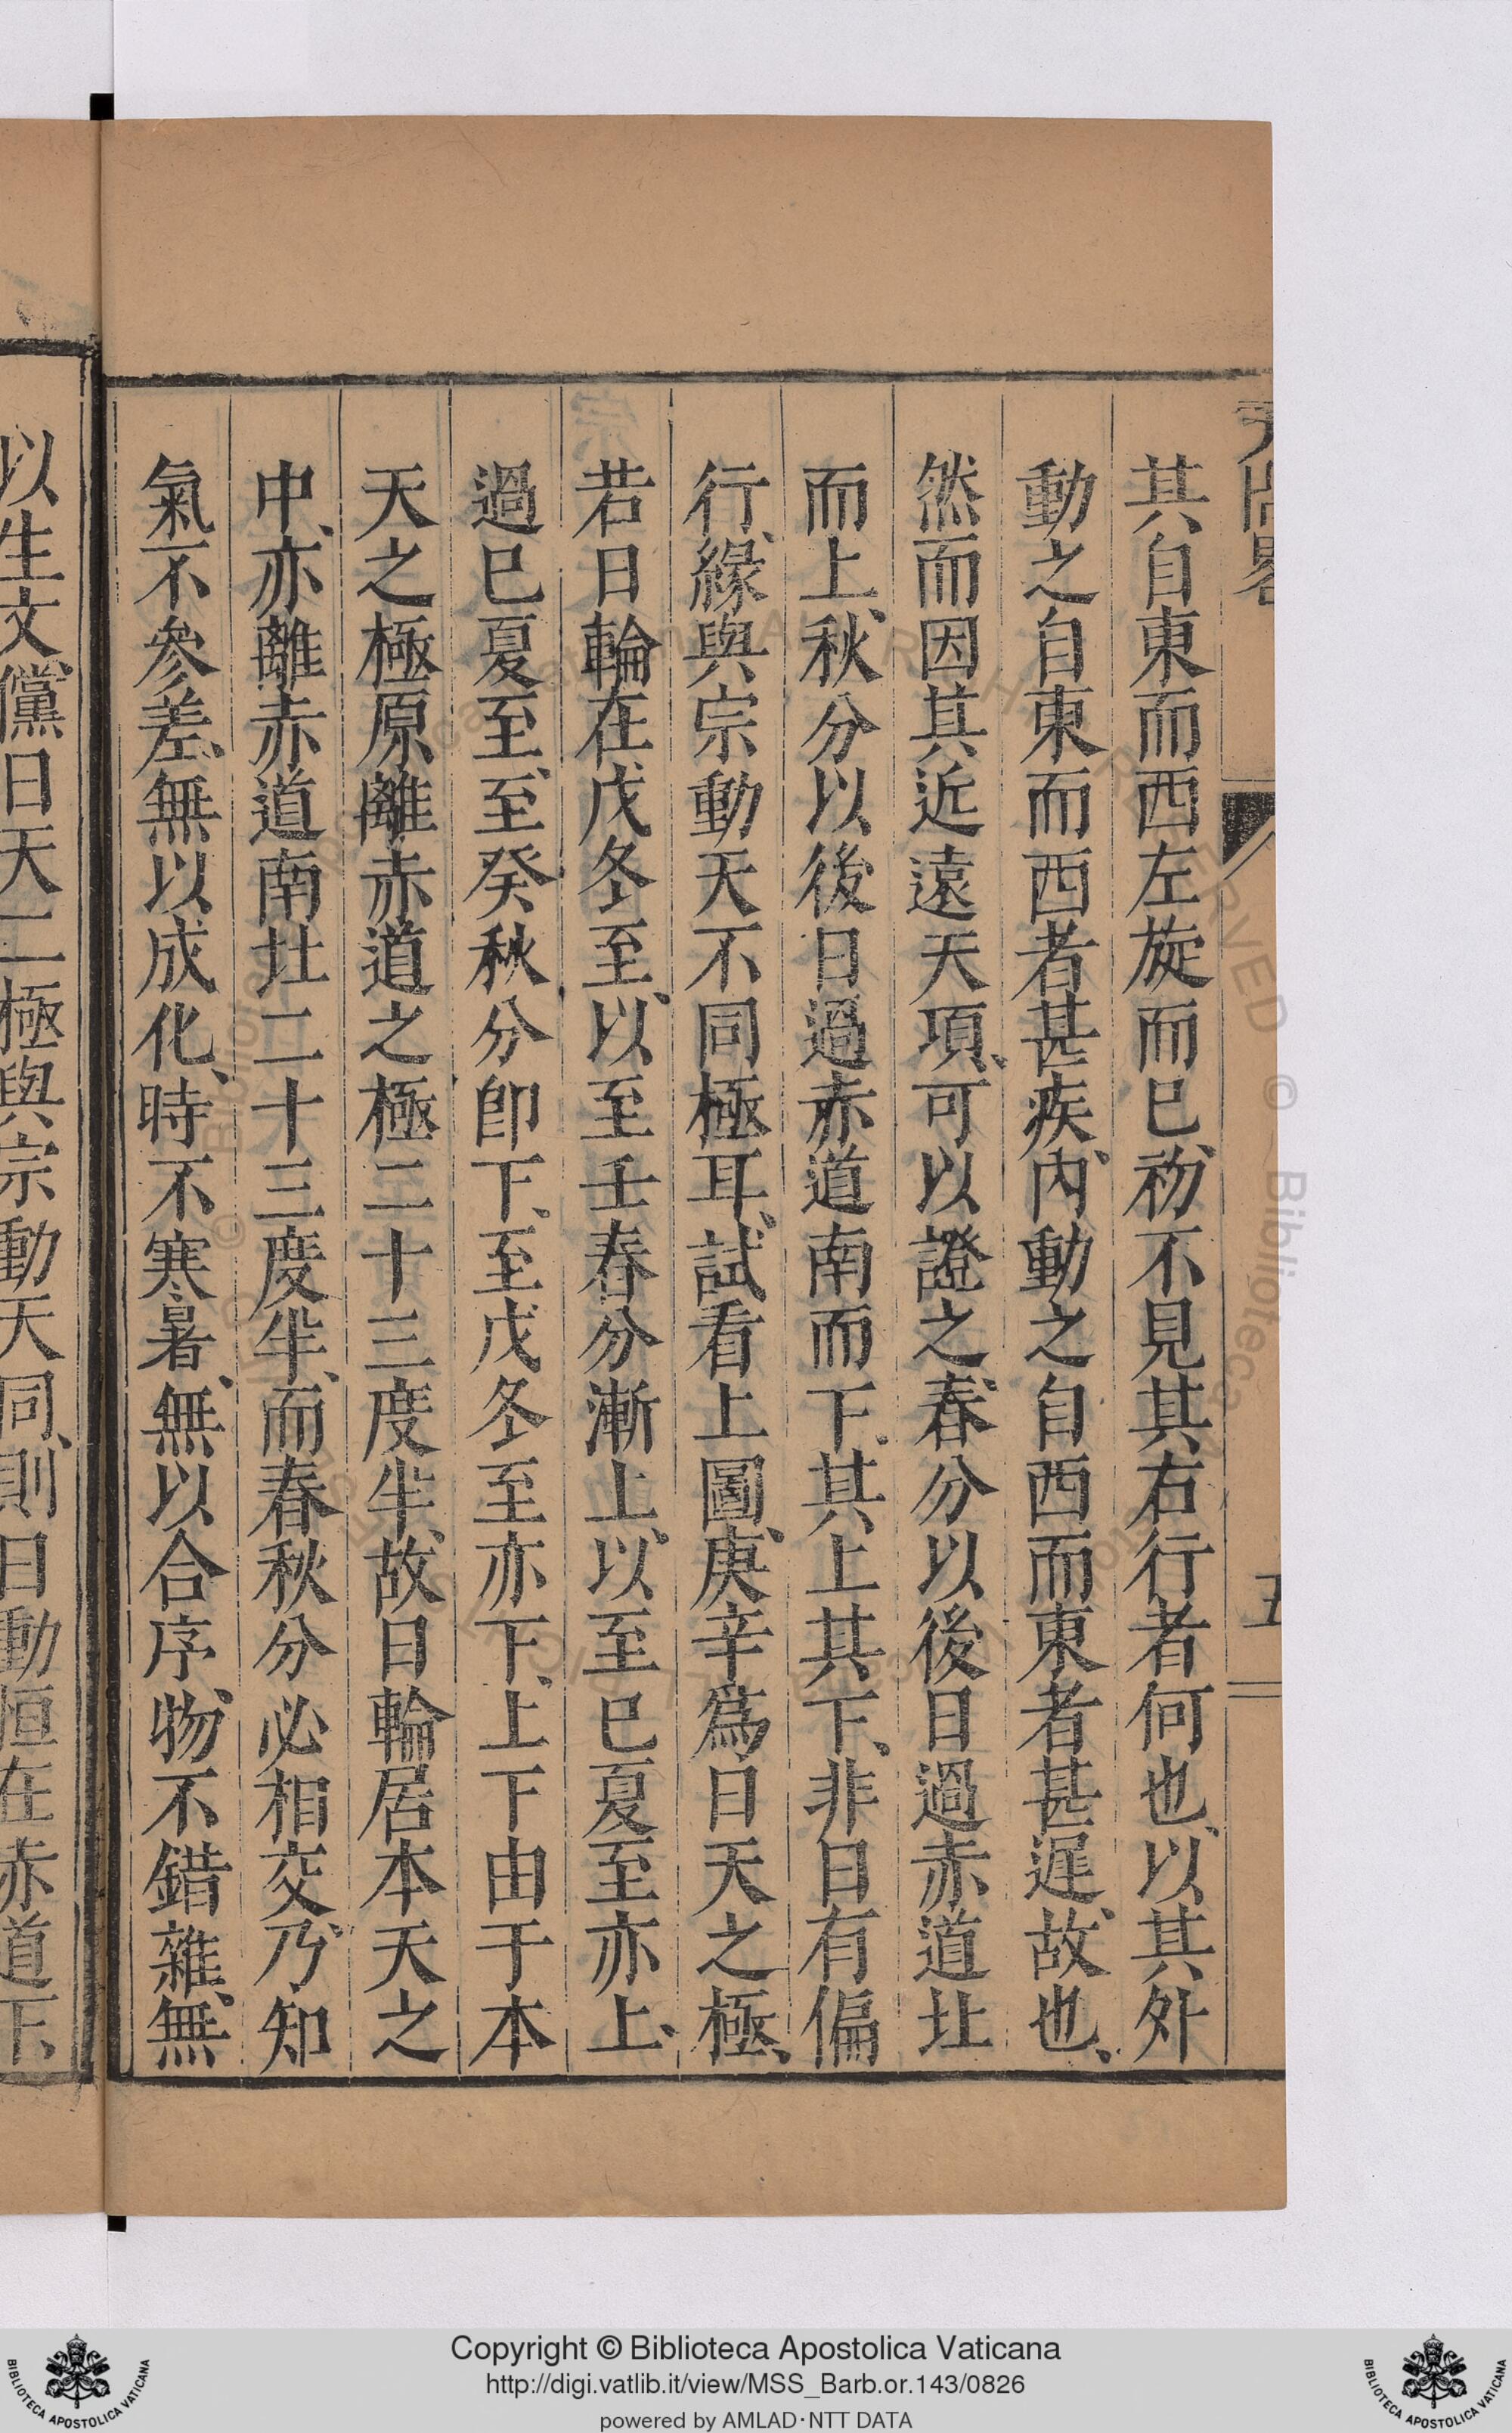 其自東而西左旋而已、初不見其右行者何也、以其外
動之自東而西者甚疾、內動之自西而東者甚遲、故也、
然而因其近遠天項、可以證之、春分以後日過赤道北
而上、秋分以後日過赤道南而下、其上其下、非日有偏
行、緣與宗動天不同極耳、試看上圖、庚辛爲日天之極、
若日輪在戊冬至、以至壬春分漸上、以至巳夏至亦上、
過巳夏至、至癸秋分卽下、至戊冬至亦下、上下由于本
天之極原離赤道之極二十三度半、故日輪居本天之
中、亦離赤道南北二十三度半、而春秋分必相交、乃知
氣不參差、無以成化、時不寒暑、無以合序、物不錯雜、無
以生文、儻日天二極與宗動天同、則日動恒在赤道下、
Copyright © Biblioteca Apostolica Vaticana
http://digi.vatlib.it/view/MSS_Barb.or.143/0826
powered by AMLAD·NTT DATA
BIBLIOTECA APOSTOLICA VATICANA
BIBLIOTECA APOSTOLICA VATICANA